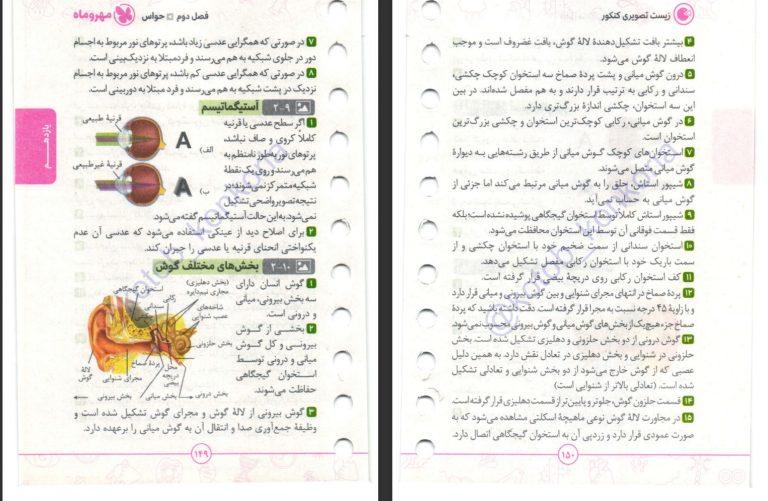 فصل دوم حواس مهروماه
۷ در صورتی که همگرایی عدسی زیاد باشد، پرتوهای نور مربوط به اجسام
دور در جلوی شبکیه به هم می‌رسند و فرد مبتلا به نزدیک‌بینی است.
۸ در صورتی که همگرایی عدسی کم باشد، پرتوهای نور مربوط به اجسام
نزدیک در پشت شبکیه به هم می‌رسند و فرد مبتلا به دوربینی است.
۹-۲ آستیگماتیسم
۱ اگر سطح عدسی یا قرنیه
کاملاً کروی و صاف نباشد،
پرتوهای نور به‌طور نامنظم به
هم می‌رسند و روی یک نقطهٔ
شبکیه متمرکز نمی‌شوند؛ در
نتیجه تصویر واضحی تشکیل
نمی‌شود. به این حالت آستیگماتیسم گفته می‌شود.
قرنیهٔ طبیعی
الف)
A
قرنیهٔ غیرطبیعی
ب)
A
۲ برای اصلاح دید از عینکی استفاده می‌شود که عدسی آن عدم
یکنواختی انحنای قرنیه یا عدسی را جبران کند.
۱۰-۲ بخش‌های مختلف گوش
۱ گوش انسان دارای
سه بخش بیرونی، میانی
و درونی است.
۲ بخشی از گوش
بیرونی و کل گوش
میانی و درونی توسط
استخوان گیجگاهی
حفاظت می‌شوند.
(بخش دهلیزی)
مجاری نیم‌دایره
استخوان گیجگاهی
رکابی
سندانی
شاخه‌های
عصب شنوایی
بخش حلزونی
لالهٔ
گوش
مجرای شنوایی
پردهٔ صماخ
محل
دریچه
بیضی
بخش بیرونی
بخش میانی
بخش درونی
۳ گوش بیرونی از لالهٔ گوش و مجرای گوش تشکیل شده است و
وظیفهٔ جمع‌آوری صدا و انتقال آن به گوش میانی را برعهده دارد.
۱۴۹
یازدهم
زیست تصویری کنکور
۴ بیشتر بافت تشکیل‌دهندهٔ لالهٔ گوش، بافت غضروف است و موجب
انعطاف لالهٔ گوش می‌شود.
۵ درون گوش میانی و پشت پردهٔ صماخ سه استخوان کوچک چکشی،
سندانی و رکابی به ترتیب قرار دارند و به هم مفصل شده‌اند. در بین
این سه استخوان، چکشی اندازهٔ بزرگ‌تری دارد.
۶ در گوش میانی، رکابی کوچک‌ترین استخوان و چکشی بزرگ‌ترین
استخوان است.
۷ استخوان‌های کوچک گوش میانی از طریق رشته‌هایی به دیوارهٔ
گوش میانی متصل می‌شوند.
۸ شیپور استاش، حلق را به گوش میانی مرتبط می‌کند اما جزئی از
گوش میانی به حساب نمی‌آید.
۹ شیپور استاش کاملاً توسط استخوان گیجگاهی پوشیده نشده است؛ بلکه
فقط قسمت فوقانی آن توسط این استخوان محافظت می‌شود.
۱۰ استخوان سندانی از سمت ضخیم خود با استخوان چکشی و از
سمت باریک خود با استخوان رکابی مفصل تشکیل می‌دهد.
۱۱ کف استخوان رکابی روی دریچهٔ بیضی قرار گرفته است.
۱۲ پردهٔ صماخ در انتهای مجرای شنوایی و بین گوش بیرونی و میانی قرار دارد
و با زاویهٔ ۴۵ درجه نسبت به مجرا قرار گرفته است. دقت داشته باشید که پردهٔ
صماخ جزء هیچ‌یک از بخش‌های گوش میانی و گوش بیرونی محسوب نمی‌شود.
۱۳ گوش درونی از دو بخش حلزونی و دهلیزی تشکیل شده است. بخش
حلزونی در شنوایی و بخش دهلیزی در تعادل نقش دارد. به همین دلیل
عصبی که از گوش خارج می‌شود از دو بخش شنوایی و تعادلی تشکیل
شده است. (تعادلی بالاتر از شنوایی است)
۱۴ قسمت حلزون گوش، جلوتر و پایین‌تر از قسمت دهلیزی قرار گرفته است.
۱۵ در مجاورت لالهٔ گوش نوعی ماهیچهٔ اسکلتی مشاهده می‌شود که به
صورت عمودی قرار دارد و زردپی آن به استخوان گیجگاهی اتصال دارد.
۱۵۰